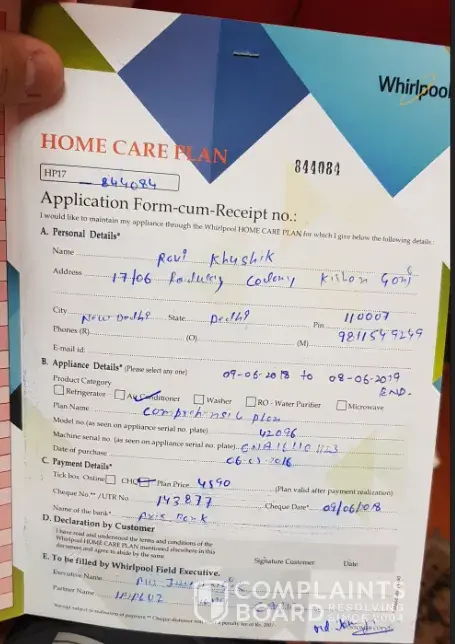 Whirlpool
HOME CARE PLAN
844084
HP17 844084
Application Form-cum-Receipt no.:
I would like to maintain my appliance through the Whirlpool HOME CARE PLAN for which I give below the following details :
A. Personal Details*
Name Ravi Khushik
Address 17/06 Railway Colony Kishan Gonj
City New Delhi State Delhi Pin 110007
Phones (R) (O) (M) 9811549249
E-mail id:
B. Appliance Details* (Please select any one) 09-06-2018 to 08-06-2019
END.
Product Category
Refrigerator Air Conditioner Washer RO - Water Purifier Microwave
Plan Name Comprehensive plan
Model no.(as seen on appliance serial no. plate) 42096
Machine serial no. (as seen on appliance serial no. plate)
Date of purchase
C. Payment Details*
Tick box Online Plan Price 4590 (Plan valid after payment realization)
Cheque No** /UTR No. 143877 Cheque Date* 09/06/018
Name of the bank* Axis Bank
D. Declaration by Customer
I have read and understood the terms and conditions of the
Whirlpool HOME CARE PLAN mentioned elsewhere in this
document and agree to abide by the same
Signature Customer Date
E. To be filled by Whirlpool Field Executive.
Executive Name
Partner Name
COMPLAINTS
BOARD RESOLVING
SINCE 2004